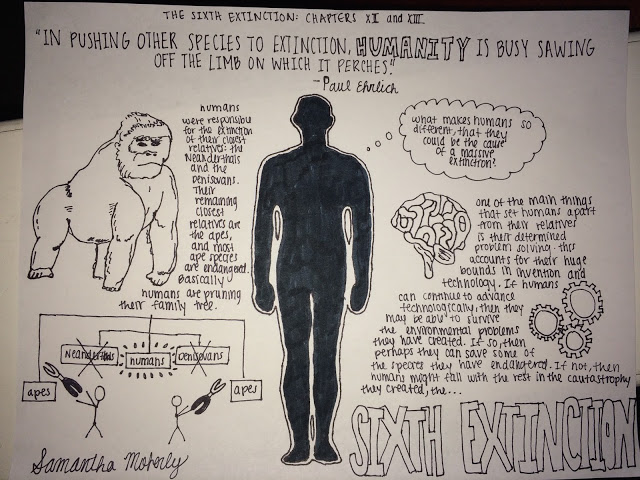 THE SIXTH EXTINCTION: CHAPTERS XI and XIII
"IN PUSHING OTHER SPECIES TO EXTINCTION, HUMANITY IS BUSY SAWING
OFF THE LIMB ON WHICH IT PERCHES."
-Paul Ehrlich
humans
were responsible
for the extinction
of their closest
relatives: the
Neanderthals
and the
Denisovans.
Their
remaining
closest
relatives are
the apes,
and most
ape species
are endangered.
Basically
humans are pruning
their family tree.
what makes humans so
different, that they
could be the cause
of a massive
extinction?
one of the main things
that set humans apart
from their relatives
is their determined
problem solving. this
accounts for their huge
bounds in invention and
technology. If humans
can continue to advance
technologically, then they
may be able to survive
the environmental problems
they have created. If so, then
perhaps they can save some of
the species they have endangered. If not, then
humans might fall with the rest in the cautastrophy
they created; the...
SIXTH EXTINCTION
Neanderthals
humans
Denisovans
apes
apes
Samantha